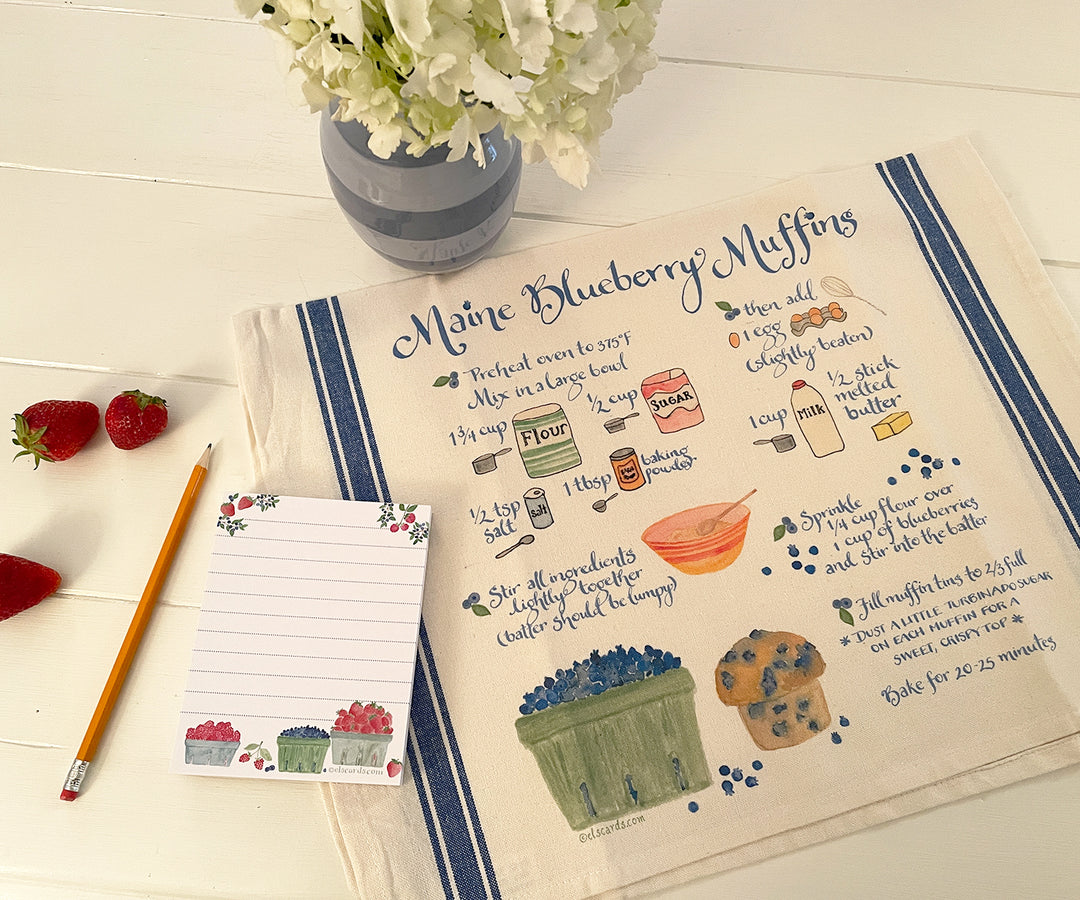 Maine Blueberry Muffins
Preheat oven to 375°F
Mix in a large bowl
1 3/4 cup
Flour
1/2 cup
SUGAR
1/2 tsp
salt
Salt
1 tbsp
baking
powder
Stir all ingredients
lightly together
(batter should be lumpy)
then add
1 egg
(slightly beaten)
1 cup
Milk
1/2 stick
melted
butter
Sprinkle
1/4 cup flour over
1 cup of blueberries
and stir into the batter
Fill muffin tins to 2/3 full
* DUST A LITTLE TURBINADO SUGAR
ON EACH MUFFIN FOR A
SWEET, CRISPY TOP *
Bake for 20-25 minutes
©elscards.com
©elscards.com